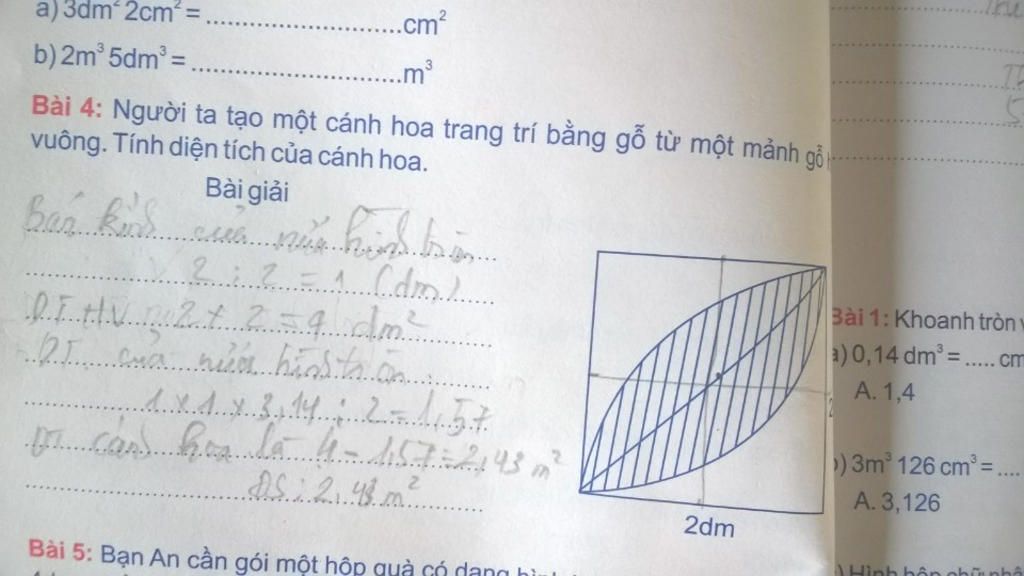 a) 3dm² 2cm² = ..............................cm²
b) 2m³ 5dm³ = ..............................m³
Bài 4: Người ta tạo một cánh hoa trang trí bằng gỗ từ một mảnh gỗ
vuông. Tính diện tích của cánh hoa.
Bài giải
Bán kính của nửa hình tròn
2 : 2 = 1 (dm)
DT HV 2 + 2 = 4 dm²
DT của nửa hình tròn
1 x 1 x 3,14 : 2 = 1,57
DT cánh hoa là 4 - 1,57 = 2,43 m²
ĐS : 2,43 m²
2dm
Bài 5: Bạn An cần gói một hộp quà có dạng
Bài 1: Khoanh tròn
a) 0,14 dm³ = ..... cm
A. 1,4
) 3m³ 126 cm³ = ....
A. 3,126
) Hình hộp chữ nhậ